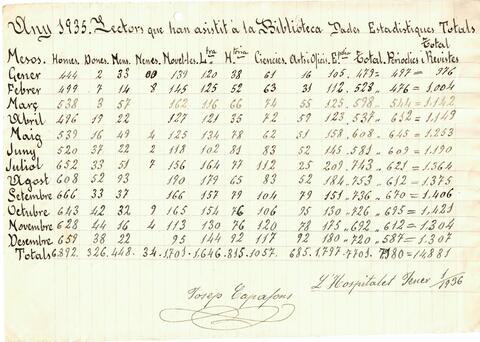 Any 1935. Lectors que han asistit à la Biblioteca Dades Estadistiques Totals
Total
Mesos. Homes. Dones. Mens. Nenes. Novel·les. Ltra H.toria Ciencies. Arts i Ofics. E.poly Total. Periodics i Revistes
Gener 444 2 33 00 139 120 38 61 16 105. 479 = 497 = 976
Febrer 499 7 14 8 145 125 52 63 31 112. 528 " 476 = 1.004
Març 538 3 57 162 116 66 74 55 125. 598 544 = 1.142
Abril 496 19 22 127 121 35 72 59 123. 537 " 612 = 1.149
Maig 539 16 49 4 125 134 78 62 51 158. 608 " 645 = 1.253
Juny 520 37 22 2 118 102 81 83 52 145. 581 " 609 = 1.190
Juliol 652 33 51 7 156 164 77 112 25 209. 743 " 621 = 1.364
Agost 608 52 93 190 179 65 83 52 184. 753 " 612 = 1.375
Setembre 666 33 37 166 157 79 104 79 151. 736 " 670 = 1.406
Octubre 643 42 32 9 165 154 76 106 95 130. 726 " 695 = 1.421
Novembre 628 44 16 4 113 130 76 120 78 175. 692 " 612 = 1.304
Desembre 659 38 22 95 144 92 117 92 180. 720 " 587 = 1.307
Totals 6392. 326. 448. 34. 1.701. 1.646. 815. 1057. 685. 1.797. 7.701. 7180 = 14881
L'Hospitalet Gener 1/1936
Josep Capafons